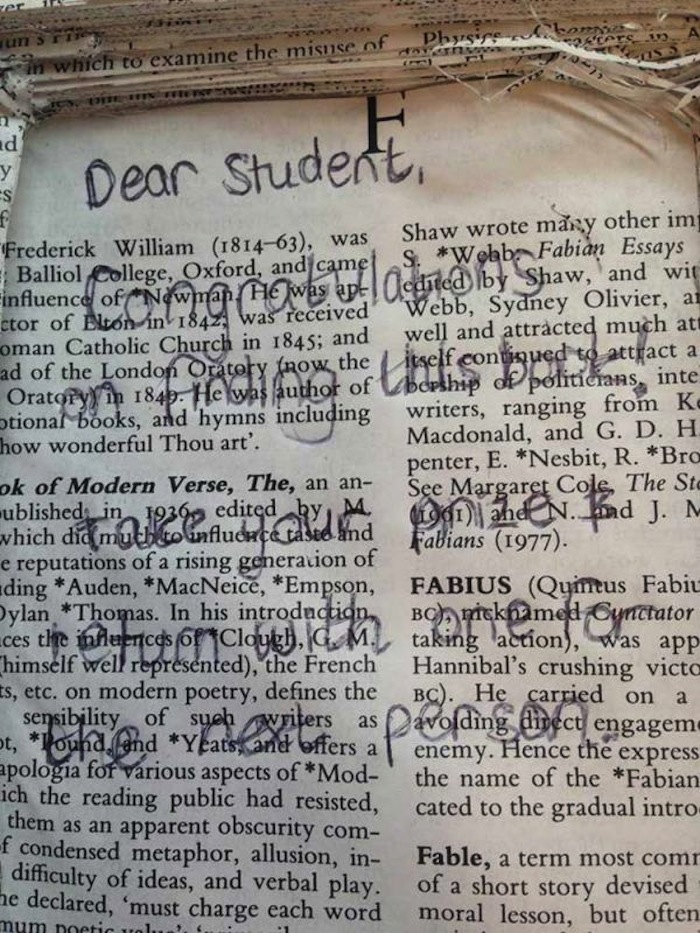 in which to examine the misuse of
Physics
F
Dear Student,
Congratulations
on finding this book!
Take your prize &
return with one for
the next person.
Frederick William (1814–63), was
Balliol College, Oxford, and came
influence of *Newman. He was ap-
ctor of Elton in 1842, was received
oman Catholic Church in 1845; and
ad of the London Oratory (now the
Oratory) in 1849. He was author of
otional books, and hymns including
how wonderful Thou art'.
ok of Modern Verse, The, an an-
published in 1936, edited by M.
which did much to influence taste and
e reputations of a rising generation of
ding *Auden, *MacNeice, *Empson,
Dylan *Thomas. In his introduction,
ces the influences of *Clough, G. M.
(himself well represented), the French
ts, etc. on modern poetry, defines the
sensibility of such writers as
ot, *Pound, and *Yeats, and offers a
apologia for various aspects of *Mod-
ich the reading public had resisted,
them as an apparent obscurity com-
f condensed metaphor, allusion, in-
difficulty of ideas, and verbal play.
he declared, 'must charge each word
mum poetic value':
Shaw wrote many other im
S. *Webb; Fabian Essays
edited by Shaw, and wit
Webb, Sydney Olivier, a
well and attracted much att
itself continued to attract a
bership of politicians, inte
writers, ranging from K
Macdonald, and G. D. H.
penter, E. *Nesbit, R. *Bro
See Margaret Cole, The Sto
(1961) and N. and J. M
Fabians (1977).
FABIUS (Quintus Fabiu
BC), nicknamed Cunctator
taking action), was app
Hannibal's crushing victo
BC). He carried on a
avoiding direct engagem
enemy. Hence the express
the name of the *Fabian
cated to the gradual intro
Fable, a term most comm
of a short story devised
moral lesson, but often